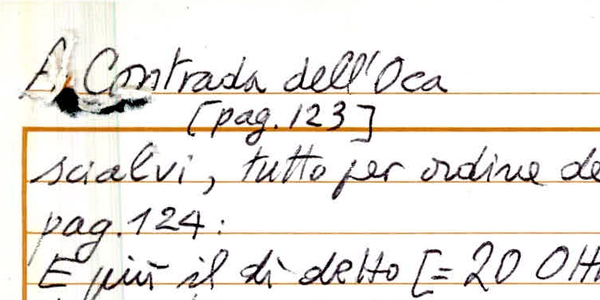 E. Contrada dell'Oca
[pag. 123]
scialvi, tutto per ordine de
pag. 124:
E più il dì detto [= 20 Ott